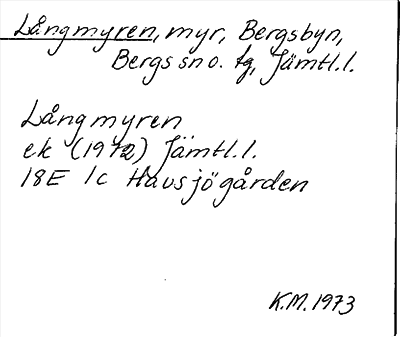 Långmyren, myr, Bergsbyn,
Bergs sn o. tg, Jämtl.l.
Långmyren
ek (1972) Jämtl.l.
18E 1c Havsjögården
K.M. 1973